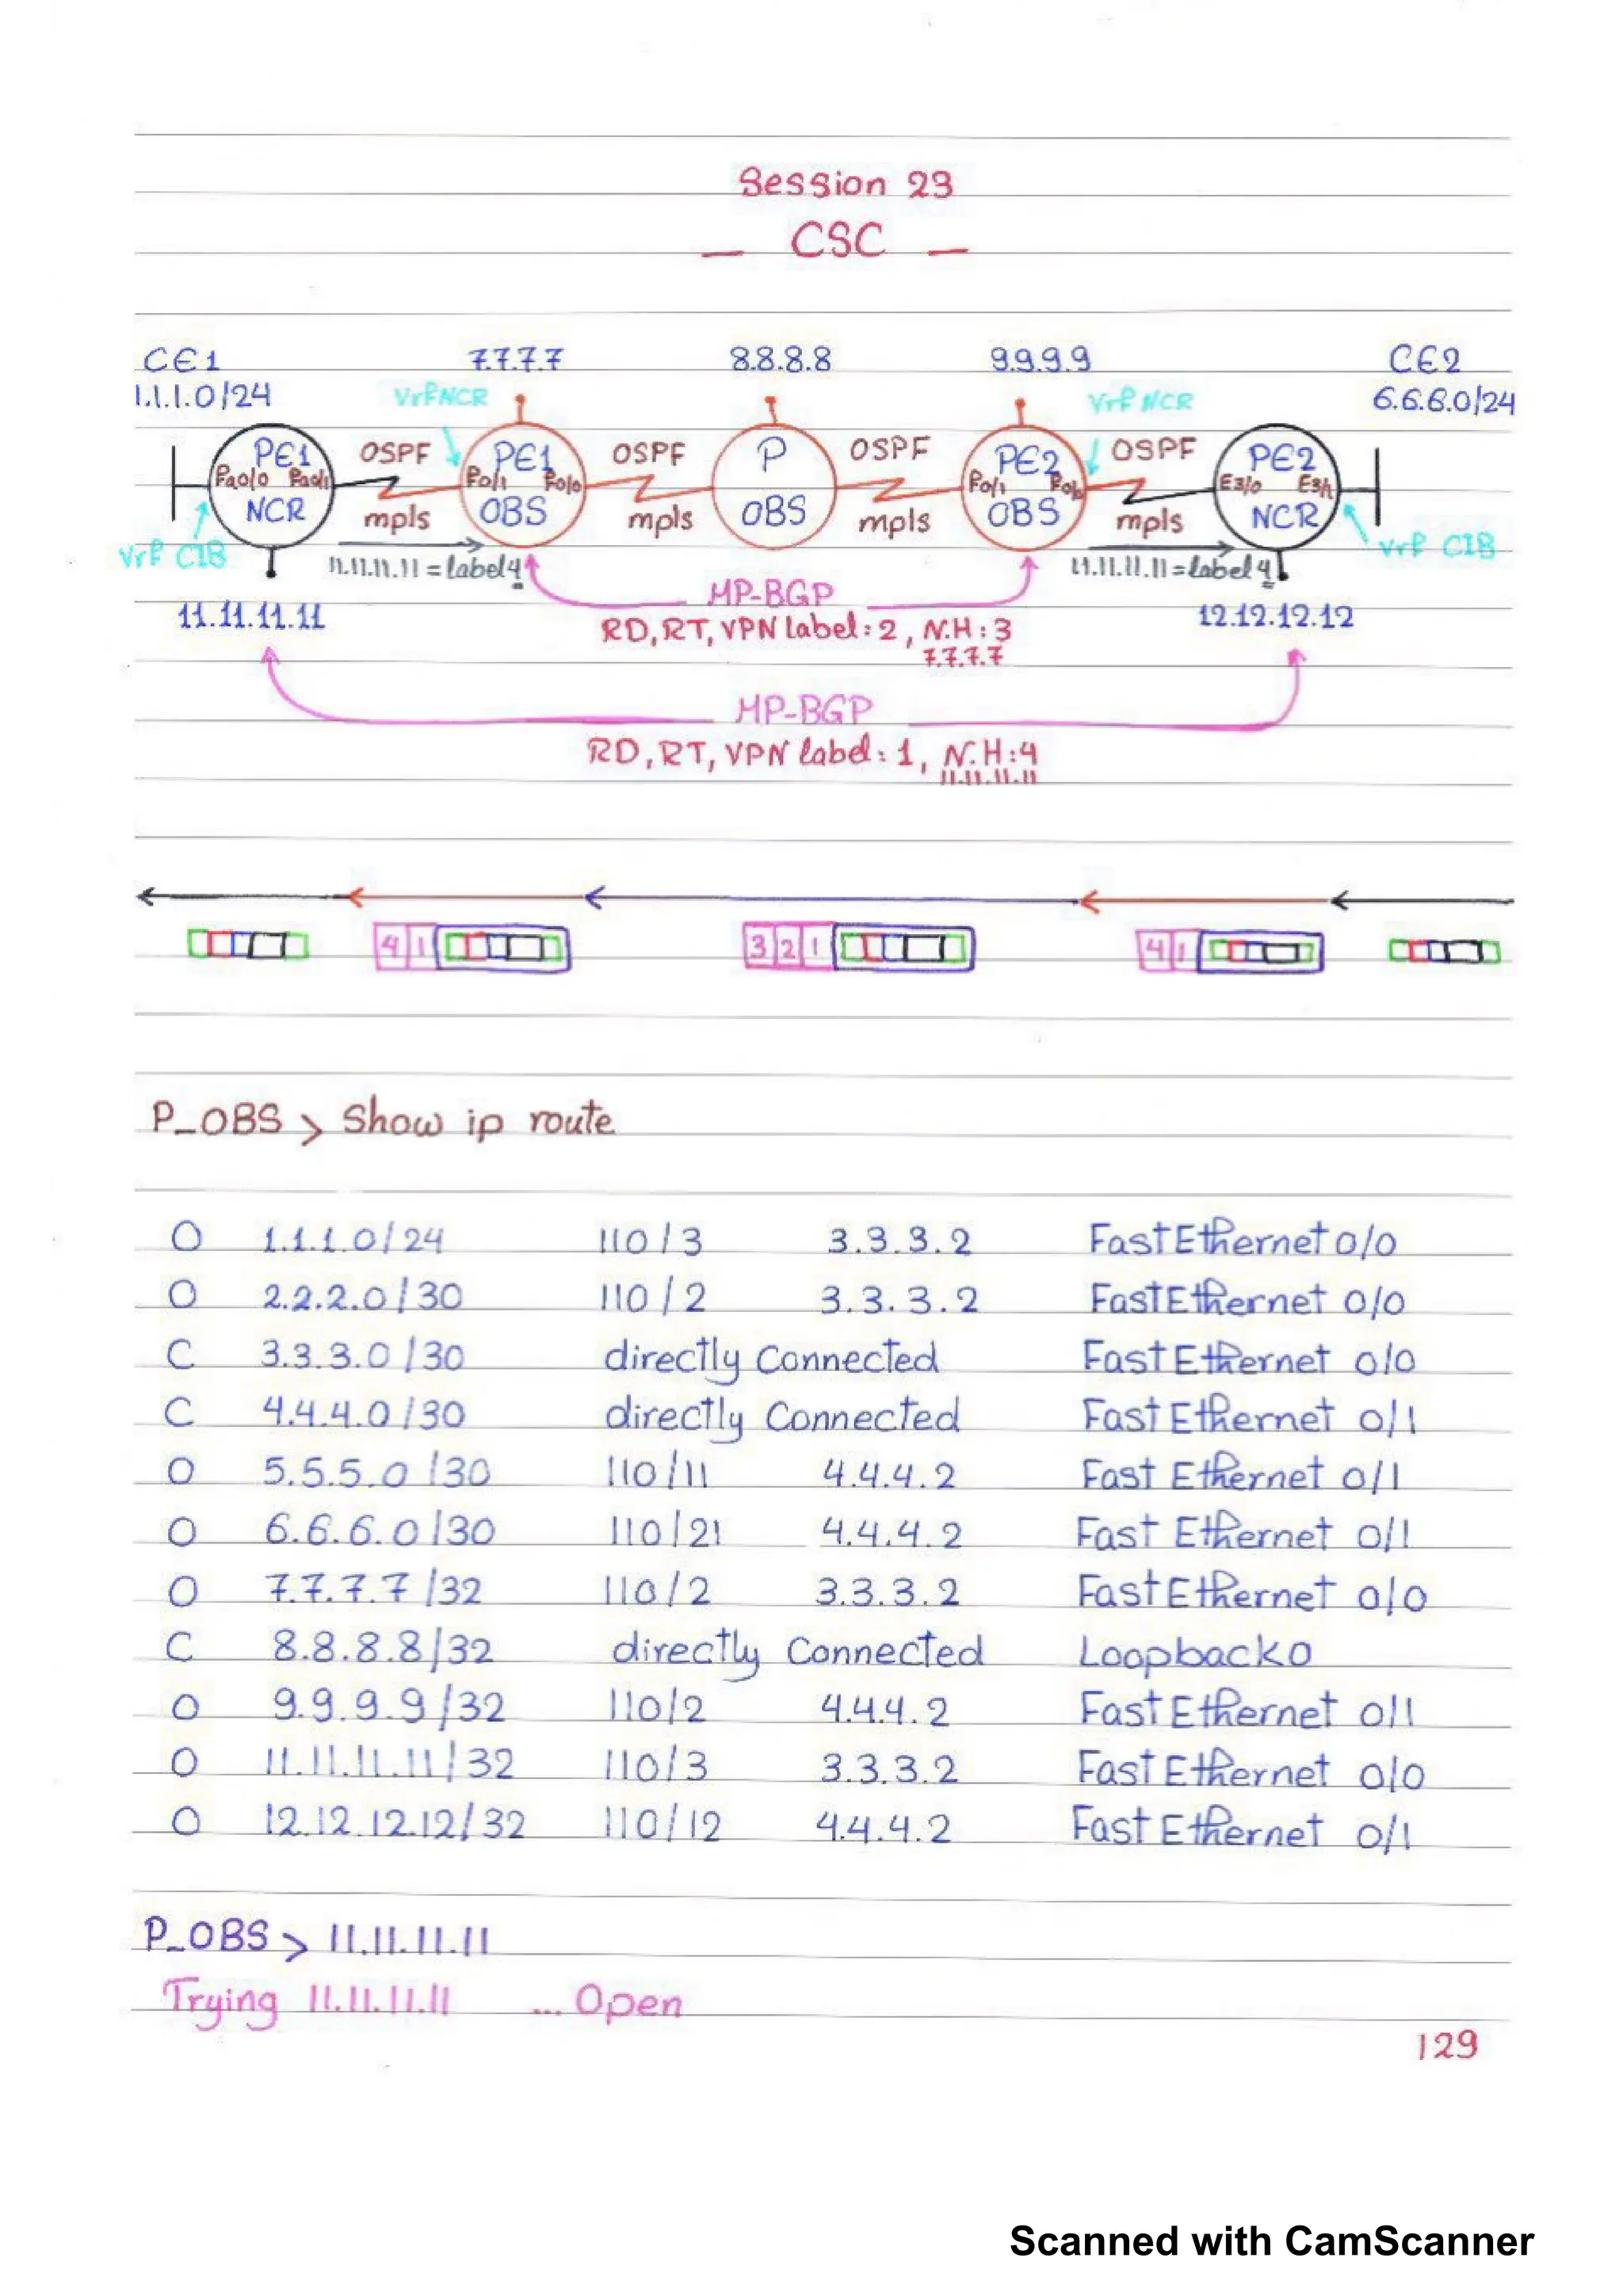 Session 23
— CSC —
CE1 7.7.7.7 8.8.8.8 9.9.9.9 CE2
1.1.1.0/24 Vrf NCR Vrf NCR 6.6.6.0/24
PE1 OSPF PE1 OSPF P OSPF PE2 OSPF PE2
Fa0/0 Fa0/1 F0/1 F0/0 F0/1 F0/0 E3/0 E3/1
NCR mpls OBS mpls OBS mpls OBS mpls NCR
Vrf CIB 11.11.11.11 = label 4 11.11.11.11 = label 4 Vrf CIB
MP-BGP
11.11.11.11 RD, RT, VPN label: 2, N.H: 3 12.12.12.12
7.7.7.7
MP-BGP
RD, RT, VPN label: 1, N.H: 4
11.11.11.11
4 1 3 2 1 4 1
P_OBS > Show ip route
O 1.1.1.0/24 110/3 3.3.3.2 FastEthernet 0/0
O 2.2.2.0/30 110/2 3.3.3.2 FastEthernet 0/0
C 3.3.3.0/30 directly Connected FastEthernet 0/0
C 4.4.4.0/30 directly Connected FastEthernet 0/1
O 5.5.5.0/30 110/11 4.4.4.2 Fast Ethernet 0/1
O 6.6.6.0/30 110/21 4.4.4.2 Fast Ethernet 0/1
O 7.7.7.7/32 110/2 3.3.3.2 FastEthernet 0/0
C 8.8.8.8/32 directly Connected Loopback0
O 9.9.9.9/32 110/2 4.4.4.2 FastEthernet 0/1
O 11.11.11.11/32 110/3 3.3.3.2 FastEthernet 0/0
O 12.12.12.12/32 110/12 4.4.4.2 FastEthernet 0/1
P_OBS > 11.11.11.11
Trying 11.11.11.11 ... Open
129
Scanned with CamScanner